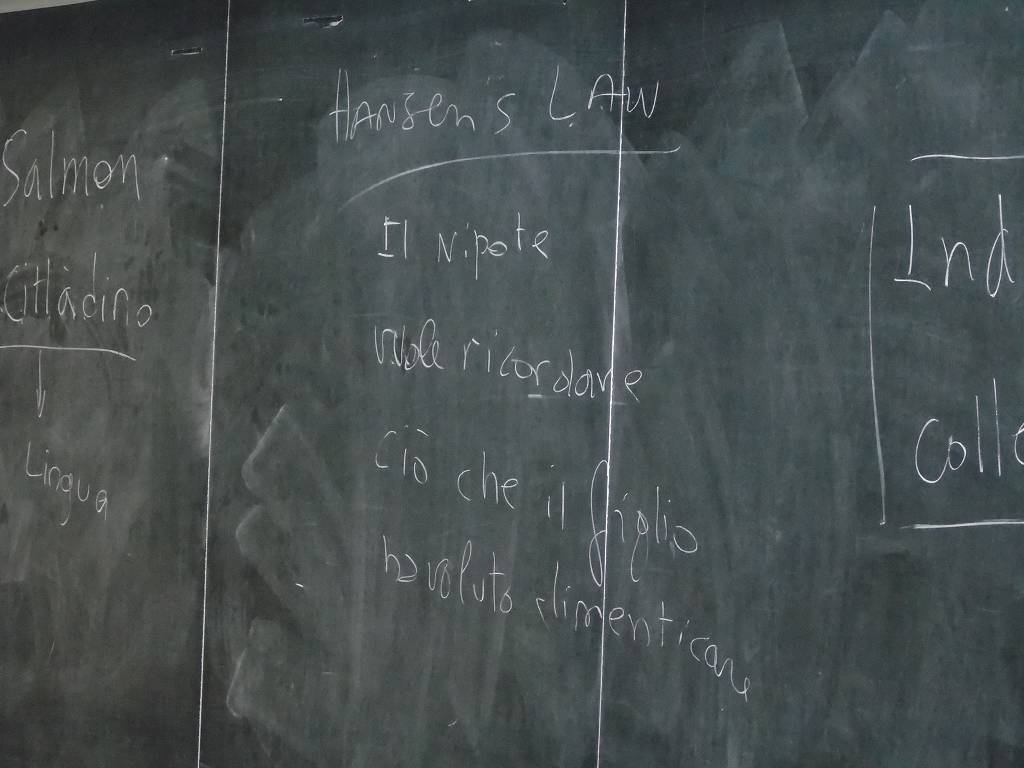 Salmon
Cittadino
Lingua
HANSEN'S LAW
Il Nipote
vuole ricordare
ciò che il figlio
ha voluto dimenticare
Ind
Colle